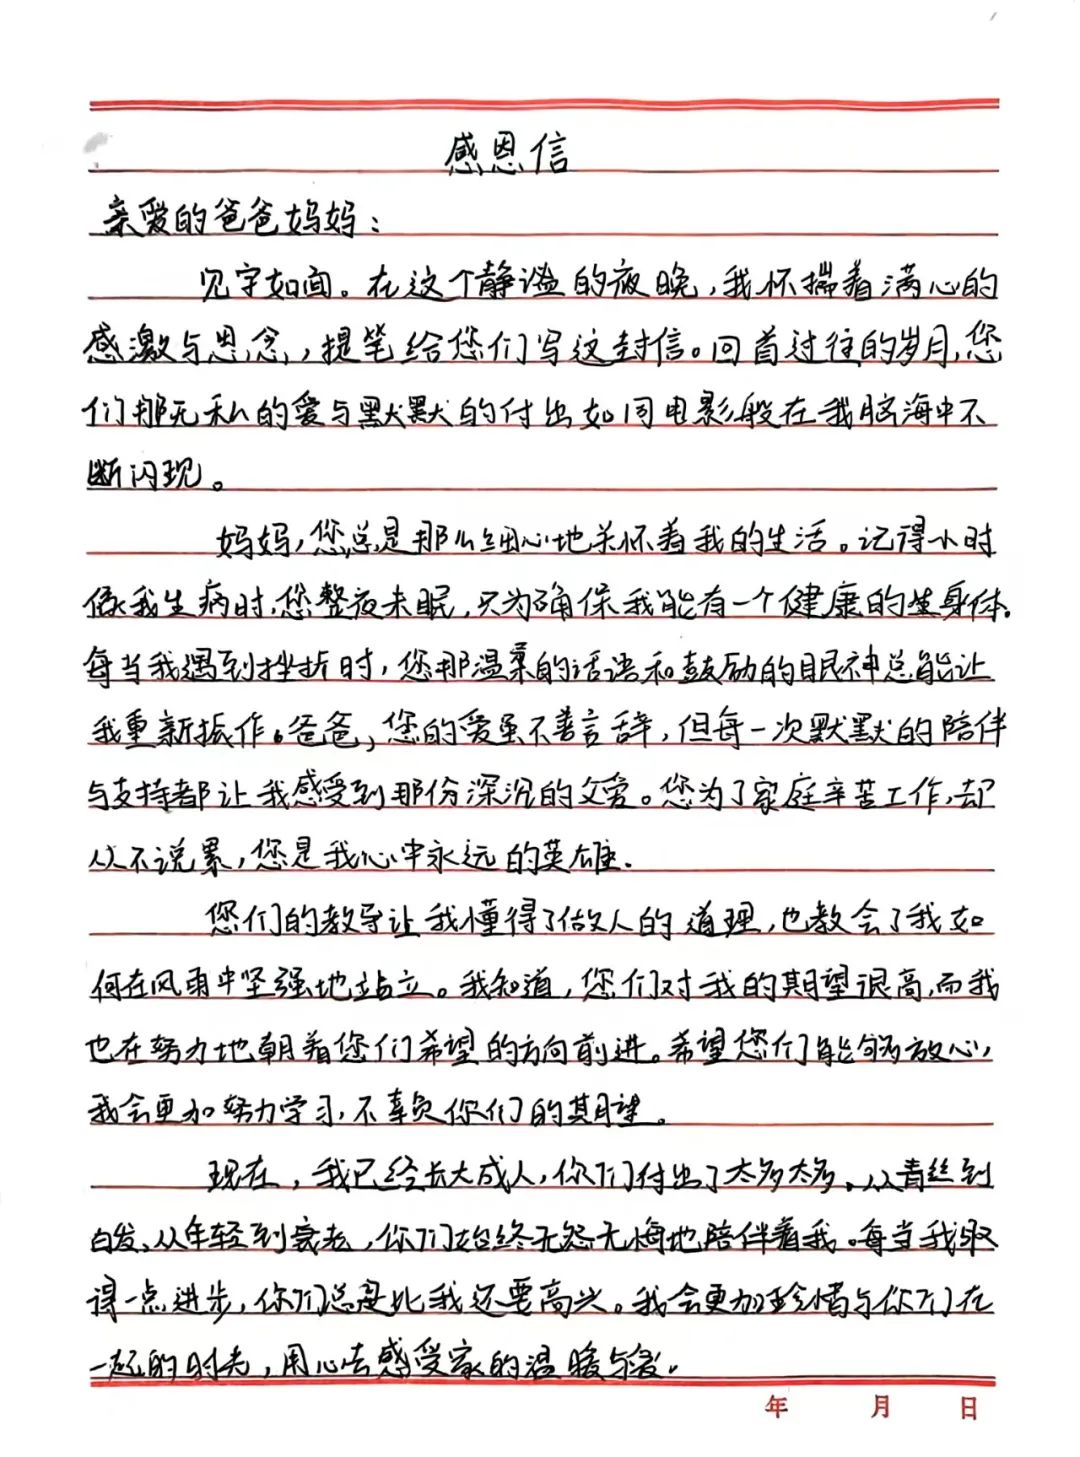 感恩信
亲爱的爸爸妈妈：
见字如面。在这个静谧的夜晚，我怀揣着满心的
感激与思念，提笔给您们写这封信。回首过往的岁月，您
们那无私的爱与默默的付出如同电影般在我脑海中不
断闪现。
妈妈，您总是那么细心地关怀着我的生活。记得小时
候我生病时，您整夜未眠，只为确保我能有一个健康的身体。
每当我遇到挫折时，您那温柔的话语和鼓励的眼神总能让
我重新振作。爸爸，您的爱虽不善言辞，但每一次默默的陪伴
与支持都让我感受到那份深沉的父爱。您为了家庭辛苦工作，却
从不说累，您是我心中永远的英雄.
您们的教导让我懂得了做人的道理，也教会了我如
何在风雨中坚强地站立。我知道，您们对我的期望很高，而我
也在努力地朝着您们希望的方向前进。希望您们能够放心，
我会更加努力学习，不辜负你们的期望。
现在，我已经长大成人，你们付出了太多太多，从青丝到
白发、从年轻到衰老，你们始终无怨无悔地陪伴着我。每当我取
得一点进步，你们总是比我还要高兴。我会更加珍惜与你们在
一起的时光，用心去感受家的温暖与爱。
年 月 日